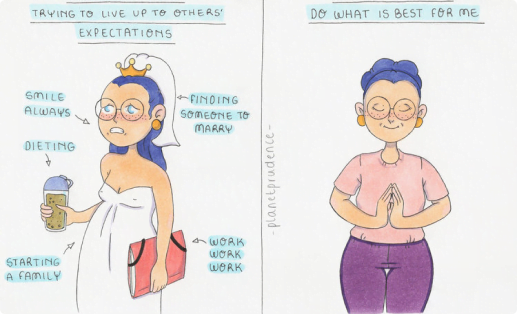 TRYING TO LIVE UP TO OTHERS'
EXPECTATIONS
SMILE
ALWAYS
FINDING
SOMEONE TO
MARRY
DIETING
STARTING
A FAMILY
WORK
WORK
WORK
-planetprudence-
DO WHAT IS BEST FOR ME